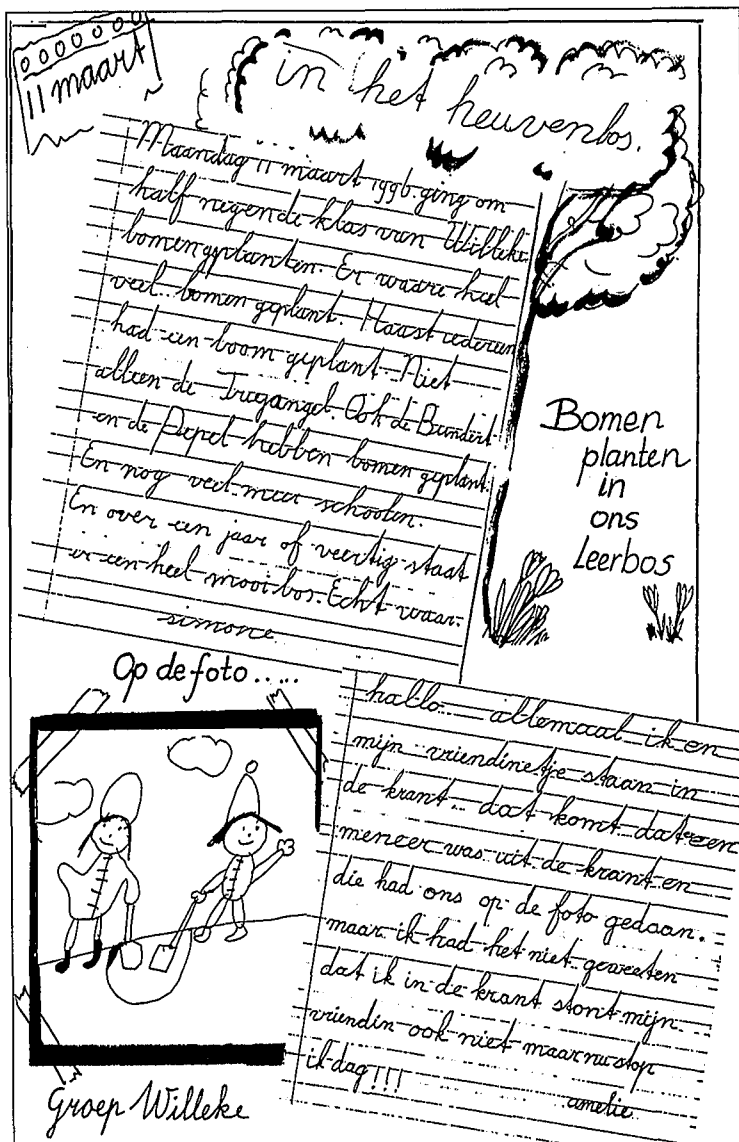 11 maart
in het heuvenbos.
Maandag 11 maart 1996. ging om
half negen de klas van Willeke
bomen geplanten. Er waare heel
veel bomen geplant. Haast iedereen
had een boom geplant. Niet
alleen de Triegangel. Ook de Bundert
en de Pepel hebben bomen geplant.
En nog veel meer schoolen.
En over een jaar of veertig staat
er een heel mooi bos. Echt waar.
simone
Bomen
planten
in
ons
Leerbos
Op de foto.....
hallo allemaal ik en
mijn vriendinetje staan in
de krant. dat komt dat een
meneer was uit de krant en
die had ons op de foto gedaan.
maar ik had het niet geweeten
dat ik in de krant stont mijn
vriendin ook niet maar nu stop
ik dag!!!
amelie
Groep Willeke